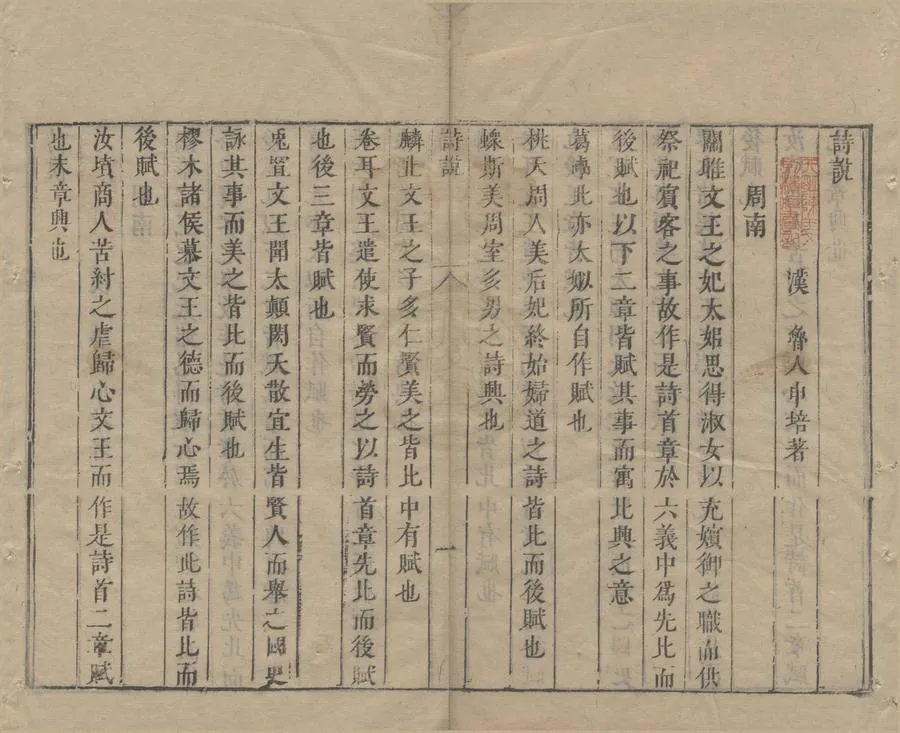 詩說
漢　魯人申培著
周南
關雎文王之妃太姒思得淑女以充嬪御之職而供
祭祀賓客之事故作是詩首章於六義中爲先比而
後賦也以下二章皆賦其事而寓比興之意
葛覃此亦太姒所自作賦也
桃夭周人美后妃終始婦道之詩皆比而後賦也
螽斯美周室多男之詩興也
詩說
一
麟止文王之子多仁賢美之皆比中有賦也
卷耳文王遣使求賢而勞之以詩首章先比而後賦
也後三章皆賦也
兎罝文王聞太顛閎夭散宜生皆賢人而舉之國史
詠其事而美之皆比而後賦也
樛木諸侯慕文王之德而歸心焉故作此詩皆比而
後賦也
汝墳商人苦紂之虐歸心文王而作是詩首二章賦
也末章興也